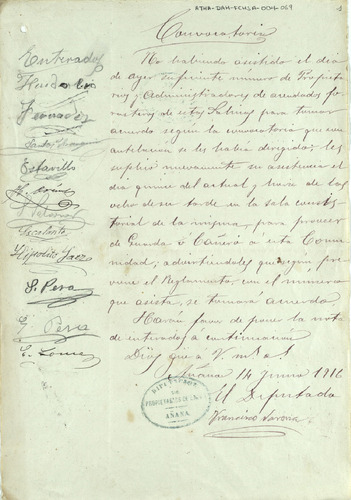 ATHA-DAH-FCHSA-004-069
Convocatoria
No habiendo asistido el dia
de ayer suficiente numero de Propieta
rios y Administradores de acendados fo
rasteros de estas Salinas para tomar
acuerdo segun la convocatoria que con
antelacion se les habia dirigido, les
suplico nuevamente su asistencia el
dia quince del actual y hora de las
ocho de su tarde en la sala consis
torial de la misma, para proveer
de Guarda ó Cañero á esta Comu
nidad, advirtiendoles que segun pre
viene el Reglamento, con el numero
que asista, se tomará acuerdo.
Harán favor de poner la nota
de enterados á continuación
Dios gue a V. ms as
Añana 14 Junio 1916
El Diputado
Francisco
Enterados
Fernandez
Estavillo
Hipolito Saez
S. Pera
Pera
DIPUTACION
DE
PROPIETARIOS DE
AÑANA